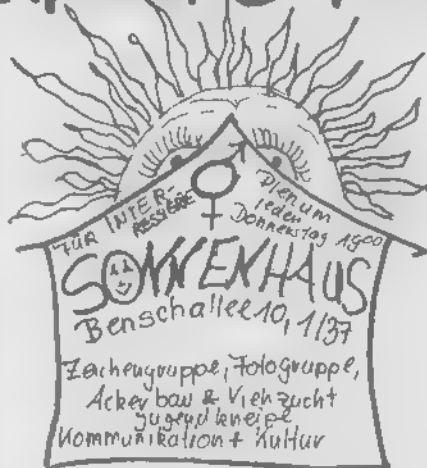 FÜR INTER-
RESSIERE
Plenum
jeden
Donnerstag 19⁰⁰
SONNENHAUS
Benschallee 10, 1/37
Zeichengruppe, Fotogruppe,
Ackerbau & Viehzucht
Jugendkneipe
Kommunikation + Kultur